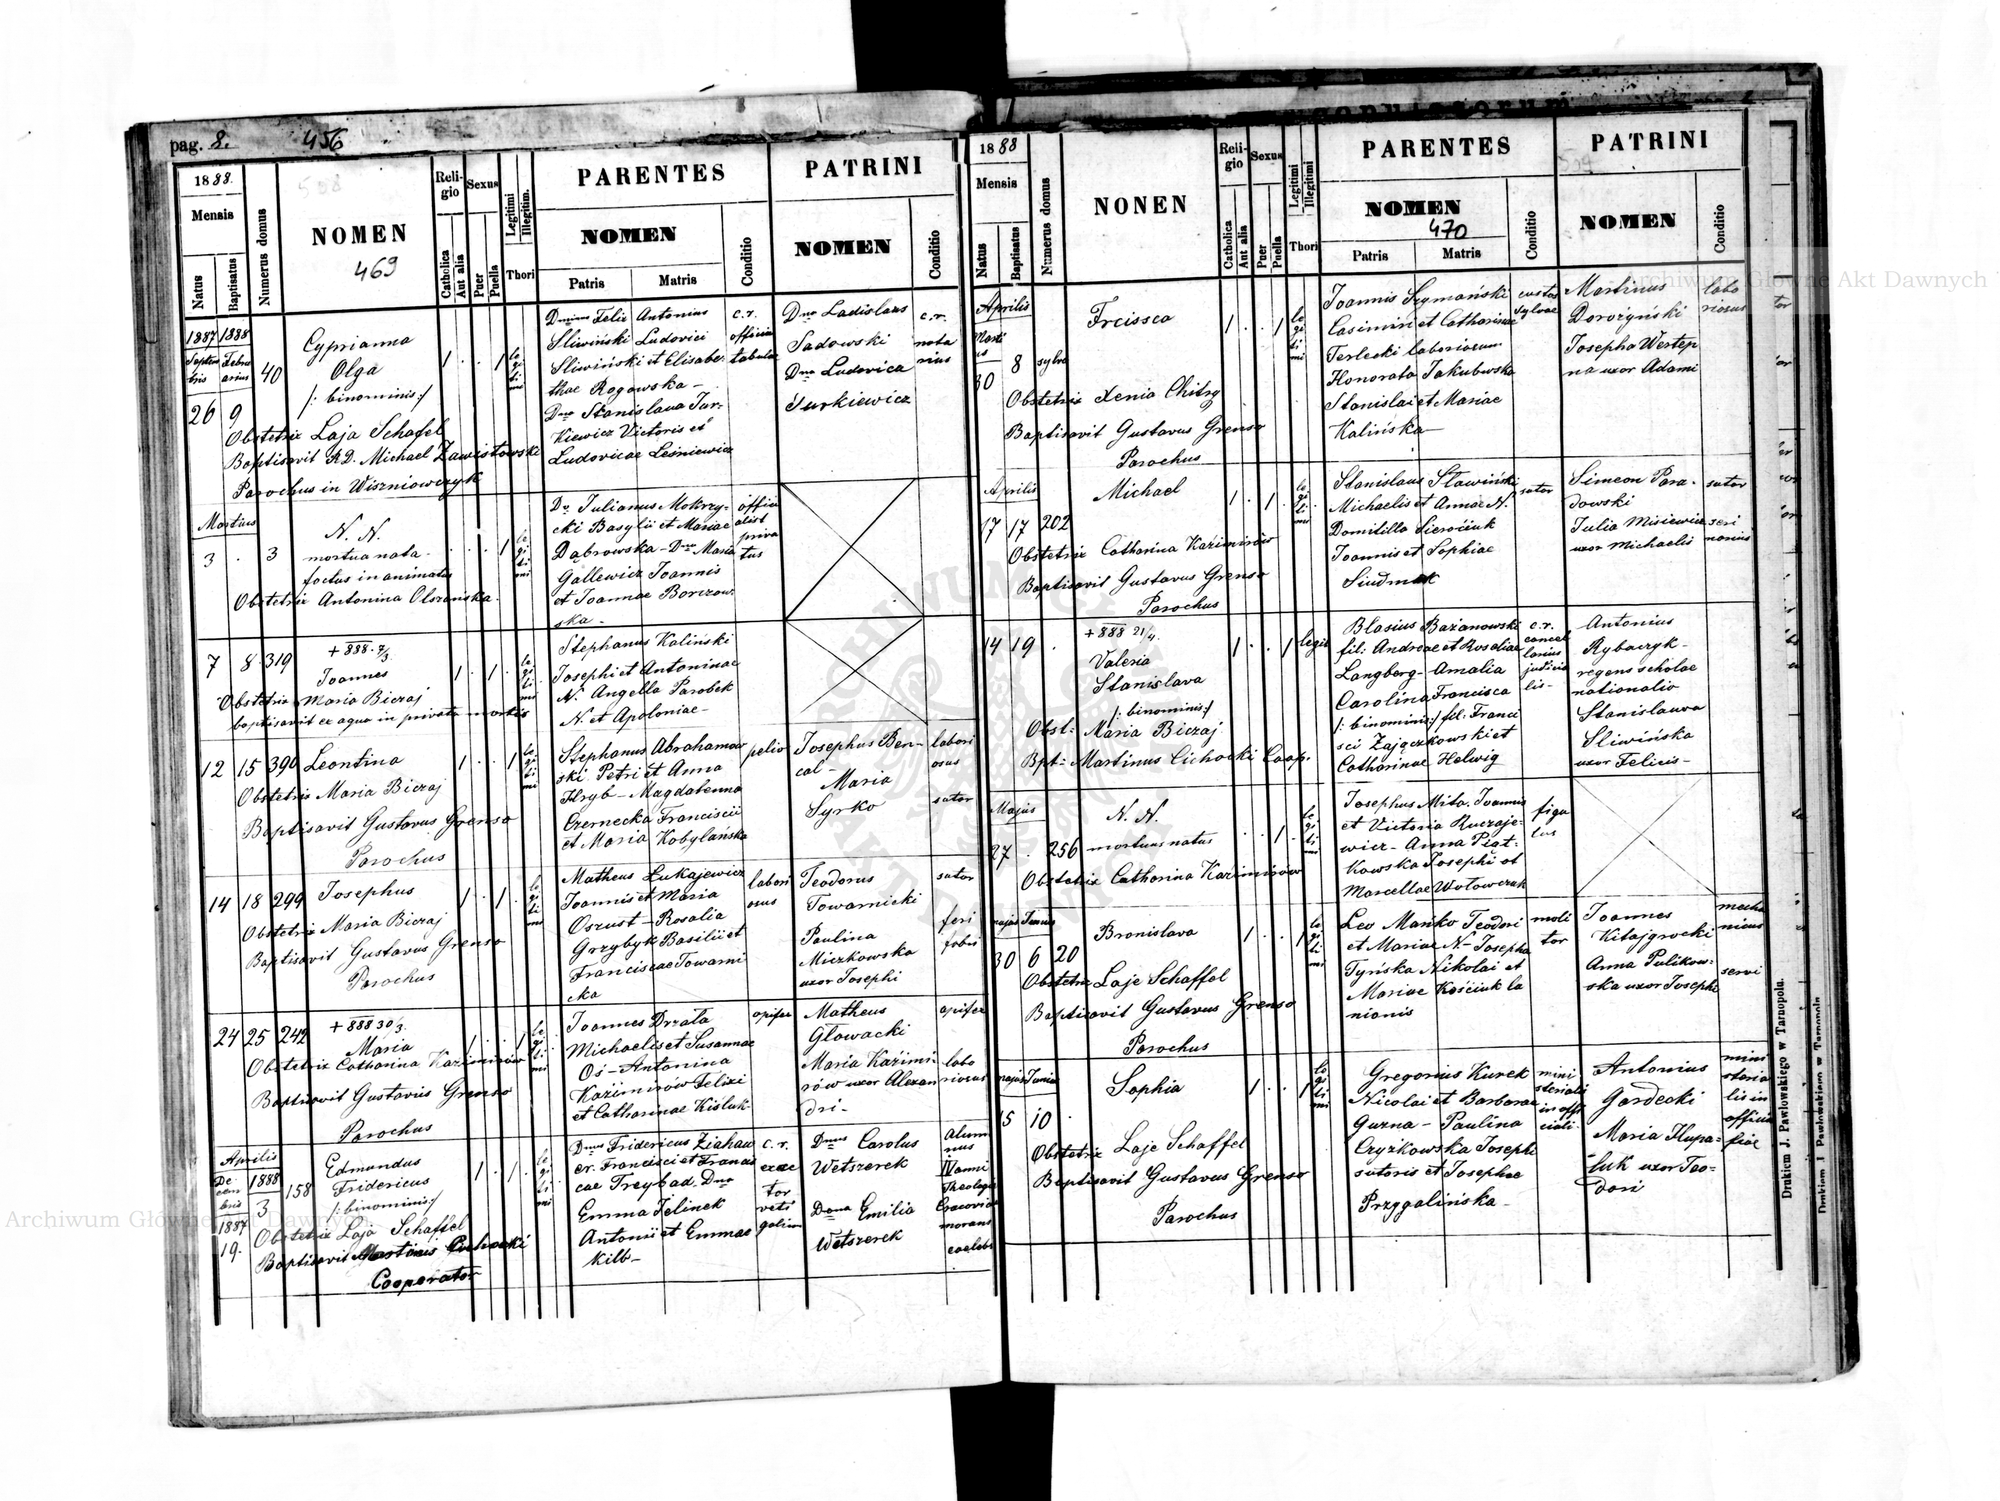 pag. 8. 456
1888.
Mensis
Natus
Baptisatus
Numerus domus
NOMEN
469
Religio
Catholica
Aut alia
Sexus
Puer
Puella
Legitimi
Illegitim.
Thori
PARENTES
NOMEN
Patris
Matris
Conditio
PATRINI
NOMEN
Conditio
1887 1888
Septembris Februarius
26 9 40
Cyprianna
Olga
/: binominis :/
1 . . 1 legitimi
Obstetrix Laja Schafel
Baptisavit R.D. Michael Zawistowski
Parochus in Wiszniowczyk
Dominus Felix Antonius
Sliwiński Ludovici
Sliwiński et Elisabe-
thae Rogowska -
Dna Stanislava Tur-
kiewicz Victoris et
Ludovicae Leśniewicz
c.r.
official
tabulae
Dnus Ladislaus
Sadowski
Dna Ludovica
Turkiewicz
c.r.
nota
rius
Martius
3 . 3
N. N.
mortua nata -
foetus in animatus
. . . 1 legitimi
Obstetrix Antonina Olszańska.
Ds Julianus Mokrzy-
cki Basylii et Mariae
Dąbrowska - Dna Maria
Gallewicz Joannis
et Joannae Borczow
ska -
offici
alist
priva
tus
7 8 319
+ 888. 7/3
Joannes
1 . 1 . legitimi
Obstetrix Maria Biczaj
baptisavit ex aqua in privato mortis
Stephanus Kaliński
Josephi et Antoninae
N. Angella Parobek
N. et Apoloniae -
12 15 390
Leontina
1 . . 1 legitimi
Obstetrix Maria Biczaj
Baptisavit Gustavus Grenso
Parochus
Stephanus Abrahamow
ski Petri et Anna
Hryb - Magdalenna
Czernecka Francisci
et Maria Kobylańska
pelio
Josephus Ben-
cal -
Maria
Syrko
labori
osus
sutor
14 18 299
Josephus
1 . 1 . legitimi
Obstetrix Maria Biczaj
Baptisavit Gustavus Grenso
Parochus
Matheus Łukajewicz
Joannis et Maria
Oszust - Rosalia
Grzybyk Basilii et
Franciscae Towarni
cka
labori
osus
Teodorus
Towarnicki
Paulina
Miczkowska
uxor Josephi
sutor
feri
fobii
24 25 242
+ 888 30/3.
Maria
1 . . 1 legitimi
Obstetrix Catharina Kazimirów
Baptisavit Gustavus Grenso
Parochus
Joannes Drzała
Michaelis et Susannae
Oś - Antonina
Kazimirów Felixi
et Catharinae Kisluk
opifex
Matheus
Glowacki
Maria Kazimi-
rów uxor Alexan
dri -
opifex
labo
riosus
Aprilis
Decembris 1888
1887 3 158
19.
Edmundus
Fridericus
/: binominis :/
1 . 1 . legitimi
Obstetrix Laja Schaffel
Baptisavit Martinus Cichocki
Cooperator
Dnus Fridericus Ziahaw
er. Francisci et Francis
cae Treybad. Dna
Emma Jelinek
Antonii et Emmae
Kilb -
c. r.
exac
tor
vecti
galium
Dnus Carolus
Wetszerek
Dna Emilia
Wetszerek
Alum
nus
IV anni
Theologi
Cracovia
morans
coelebs
1888
Mensis
Natus
Baptisatus
Numerus domus
NONEN
Religio
Catholica
Aut alia
Sexus
Puer
Puella
Legitimi
Illegitimi
Thori
PARENTES
NOMEN
470
Patris
Matris
Conditio
PATRINI
NOMEN
Conditio
Aprilis
Marti
us
30 8 sylva
Frcissca
1 . . 1 legitimi
Obstetrix Xenia Chitry
Baptisavit Gustavus Grenso
Parochus
Joannis Szymański
Casimiri et Catharinae
Terlecki laboriosum
Honorata Jakubwska
Stanislai et Mariae
Kalińska -
custos
sylvae
Martinus
Dorożyński
Josepha Westep
na uxor Adami
labo
riosus
Aprilis
17 17 202
Michael
1 . 1 . legitimi
Obstetrix Catharina Kazimirów
Baptisavit Gustavus Grenso
Parochus
Stanislaus Sławiński
Michaelis et Annae N.
Domitilla Sierociuk
Joannis et Sophiae
Siudmak
sutor
Simeon Para-
dowski
Julia Misiewicz
uxor Michaelis
sutor
14 19 .
+ 888 21/4.
Valeria
Stanislava
/: binominis :/
1 . . 1 legit
Obst: Maria Biczaj
Bpt: Martinus Cichocki Coop.
Blasius Bazanowski
fil: Andreae et Rosaliae
Langberg - Amalia
Carolina Francisca
/: binominis :/ fil: Franci
sci Zajączkowski et
Catharinae Helwig
c.r.
cancel
larius
judicia
lis -
Antonius
Rybaczyk -
regens scholae
nationalis
Stanislawa
Sliwińska
uxor Felicis -
Majus
27 . 256
N. N.
mortuus natus
. . 1 . legitimi
Obstetrix Catharina Kazimirów
Josephus Mita. Joannis
et Victoria Ruczaje-
wicz - Anna Piąt-
kowska Josephi et
Marcellae Wołowczuk
figu
lus
majus Junius
30 6 20
Bronislava
1 . . 1 legitimi
Obstetrix Laje Schaffel
Baptisavit Gustavus Grenso
Parochus
Leo Mańko Teodori
et Mariae N - Josepha
Tyńska Nikolai et
Mariae Kościuk la
nionis
moli
tor
Joannes
Kitajgrocki
Anna Pulikow-
ska uxor Josephi
mecha
nicus
servi
majus Junius
15 10 .
Sophia
1 . . 1 legitimi
Obstetrix Laje Schaffel
Baptisavit Gustavus Grenso
Parochus
Gregorius Kurek
Nicolai et Barbarae
Guzna - Paulina
Czyzkowska Josephi
sutoris et Josephae
Przygalińska -
mini
sterialis
in offi
ciali
Antonius
Gardecki
Maria Hupa-
luk uxor Teo-
dori
mini
steria
lis in
officio
Drukiem J. Pawłowskiego w Tarnopolu.
Drukiem J. Pawłowskiego w Tarnopolu
Archiwum Główne Akt Dawnych
Archiwum Główne Akt Dawnych
ARCHIWUM GŁÓWNE AKT DAWNYCH